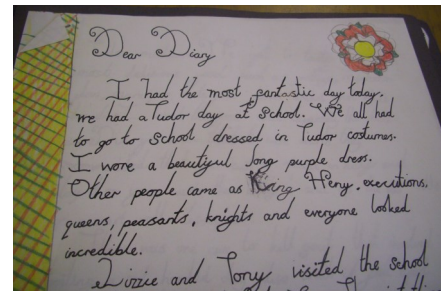 Dear Diary
I had the most fantastic day today.
we had a Tudor day at School. We all had
to go to School dressed in Tudor costumes.
I wore a beautiful long purple dress.
Other people came as King Heny, executions,
queens, peasants, knights and everyone looked
incredible.
Lizzie and Tony visited the school